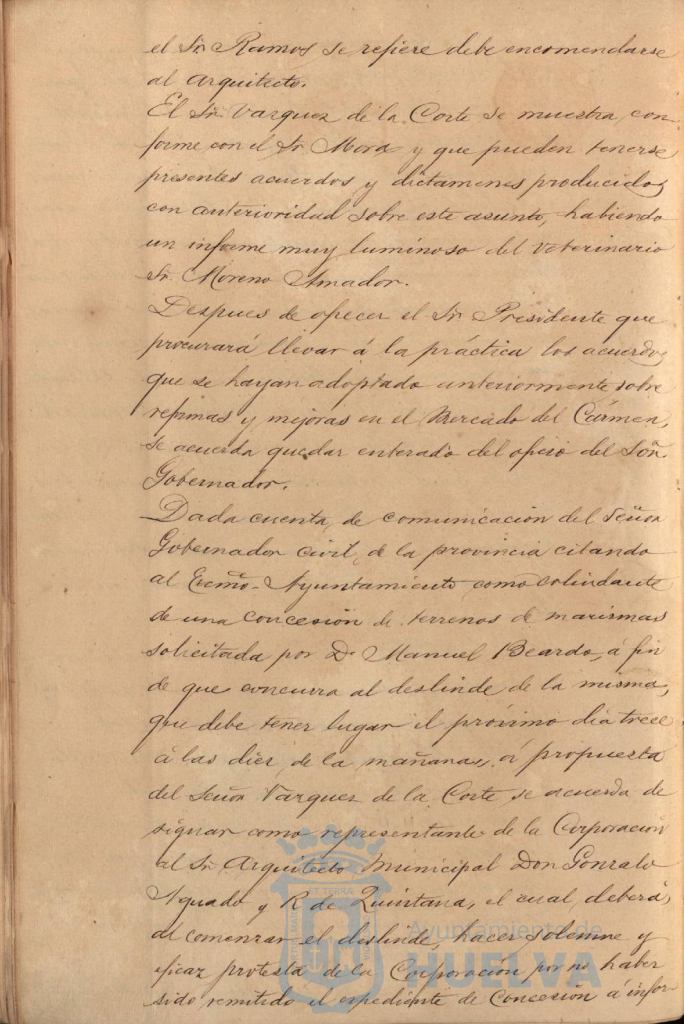 el Sr. Ramos se refiere debe encomendarse
al Arquitecto.
El Sr. Vazquez de la Corte se muestra con-
forme con el Sr. Mora y que pueden tenerse
presentes acuerdos y dictamenes producidos
con anterioridad sobre este asunto, habiendo
un informe muy luminoso del veterinario
Sr. Moreno Amador.
Despues de ofrecer el Sr. Presidente que
procurará llevar á la práctica los acuerdos
que se hayan adoptado anteriormente sobre
reformas y mejoras en el Mercado del Cármen,
se acuerda quedar enterado del oficio del Señ.
Gobernador.
Dada cuenta de comunicación del Señor
Gobernador civil de la provincia citando
al Excmo. Ayuntamiento como colindante
de una concesión de terrenos de marismas
solicitada por Dn. Manuel Beardo, á fin
de que concurra al deslinde de la misma,
que debe tener lugar el próximo dia trece
á las diez de la mañana, á propuesta
del Señor Vazquez de la Corte se acuerda de
signar como representante de la Corporación
al Sr. Arquitecto Municipal Don Gonzalo
Aguado y R. de Quintana, el cual deberá,
al comenzar el deslinde, hacer solemne y
eficaz protesta de la Corporacion por no haber
sido remitido el expediente de Concesión á infor-
Ayuntamiento de
HUELVA